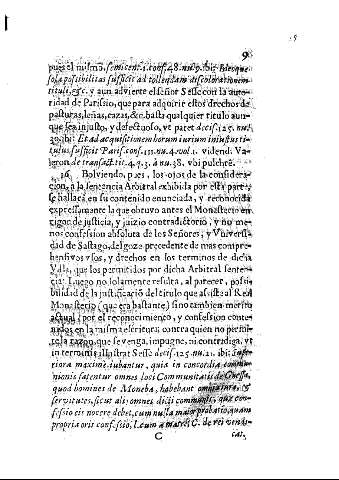 9
pues el mismo, semicent. 1. conf. 48. nu. 9. ibi: Ideoque
sola possibilitas sufficit ad tollendam discolorationem
tituli, &c. y aun advierte el señor Sesse con la auto-
ridad de Parissio, que para adquirir estos drechos de
pasturas, leñas, caza, &c. basta qualquier titulo aun-
que sea injusto, y defectuoso, vt patet decis. 125. nu.
39. ibi: Et ad acquisitionem horum iurium iniustus ti-
tulus sufficit Paris. conf. 151. nu. 4. vol. 1. vidend. Va-
leron de transact. tit. 4. q. 3. à nu. 38. vbi pulchrè.
16 Bolviendo, pues, los ojos de la considera-
cion, a la sentencia Arbitral exhibida por esta parte,
se hallarà en su contenido enunciada, y reconocida
expressamente la que obtuvo antes el Monasterio en
rigor de justicia, y juizio contradictorio, y no me-
nos confession absoluta de los Señores, y Vniversi-
dad de Sastago, del goze precedente de mas compre-
hensivos vsos, y drechos en los terminos de dicha
Villa, que los permitidos por dicha Arbitral senten-
cia: Luego no solamente resulta, al parecer, possi-
bilidad de la justificaciõ del titulo que assiste al Real
Monasterio (que era bastante) sino tambien merito
actual, por el reconocimiento, y confession conte-
nidos en la misma escritura; contra quien no permi-
te la razon, que se venga, impugne, ni contradiga, vt
in terminis illustrat Sessè decis. 125. nu. 21. ibi: Supe-
riora maximè iubantur, quia in concordia commu-
nionis fatentur omnes loci Communitatis de
quod homines de Moneba, habebant
servitutes, sicut alij omnes dicti communis, quæ con-
fessio eis nocere debet, cum nulla maior probatio, quam
propria oris confessio, l. cum a matre, C. de rei vendi-
C cat.